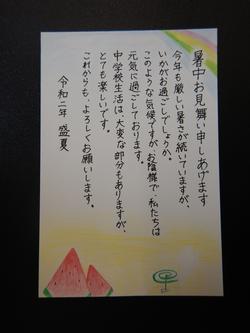 暑中お見舞い申しあげます
今年も厳しい暑さが続いていますが、
いかがお過ごしでしょうか。
このような気候ですが、お陰様で、私たちは
元気に過ごしております。
中学校生活は、大変な部分もありますが、
とても楽しいです。
これからも、よろしくお願いします。
令和二年 盛夏